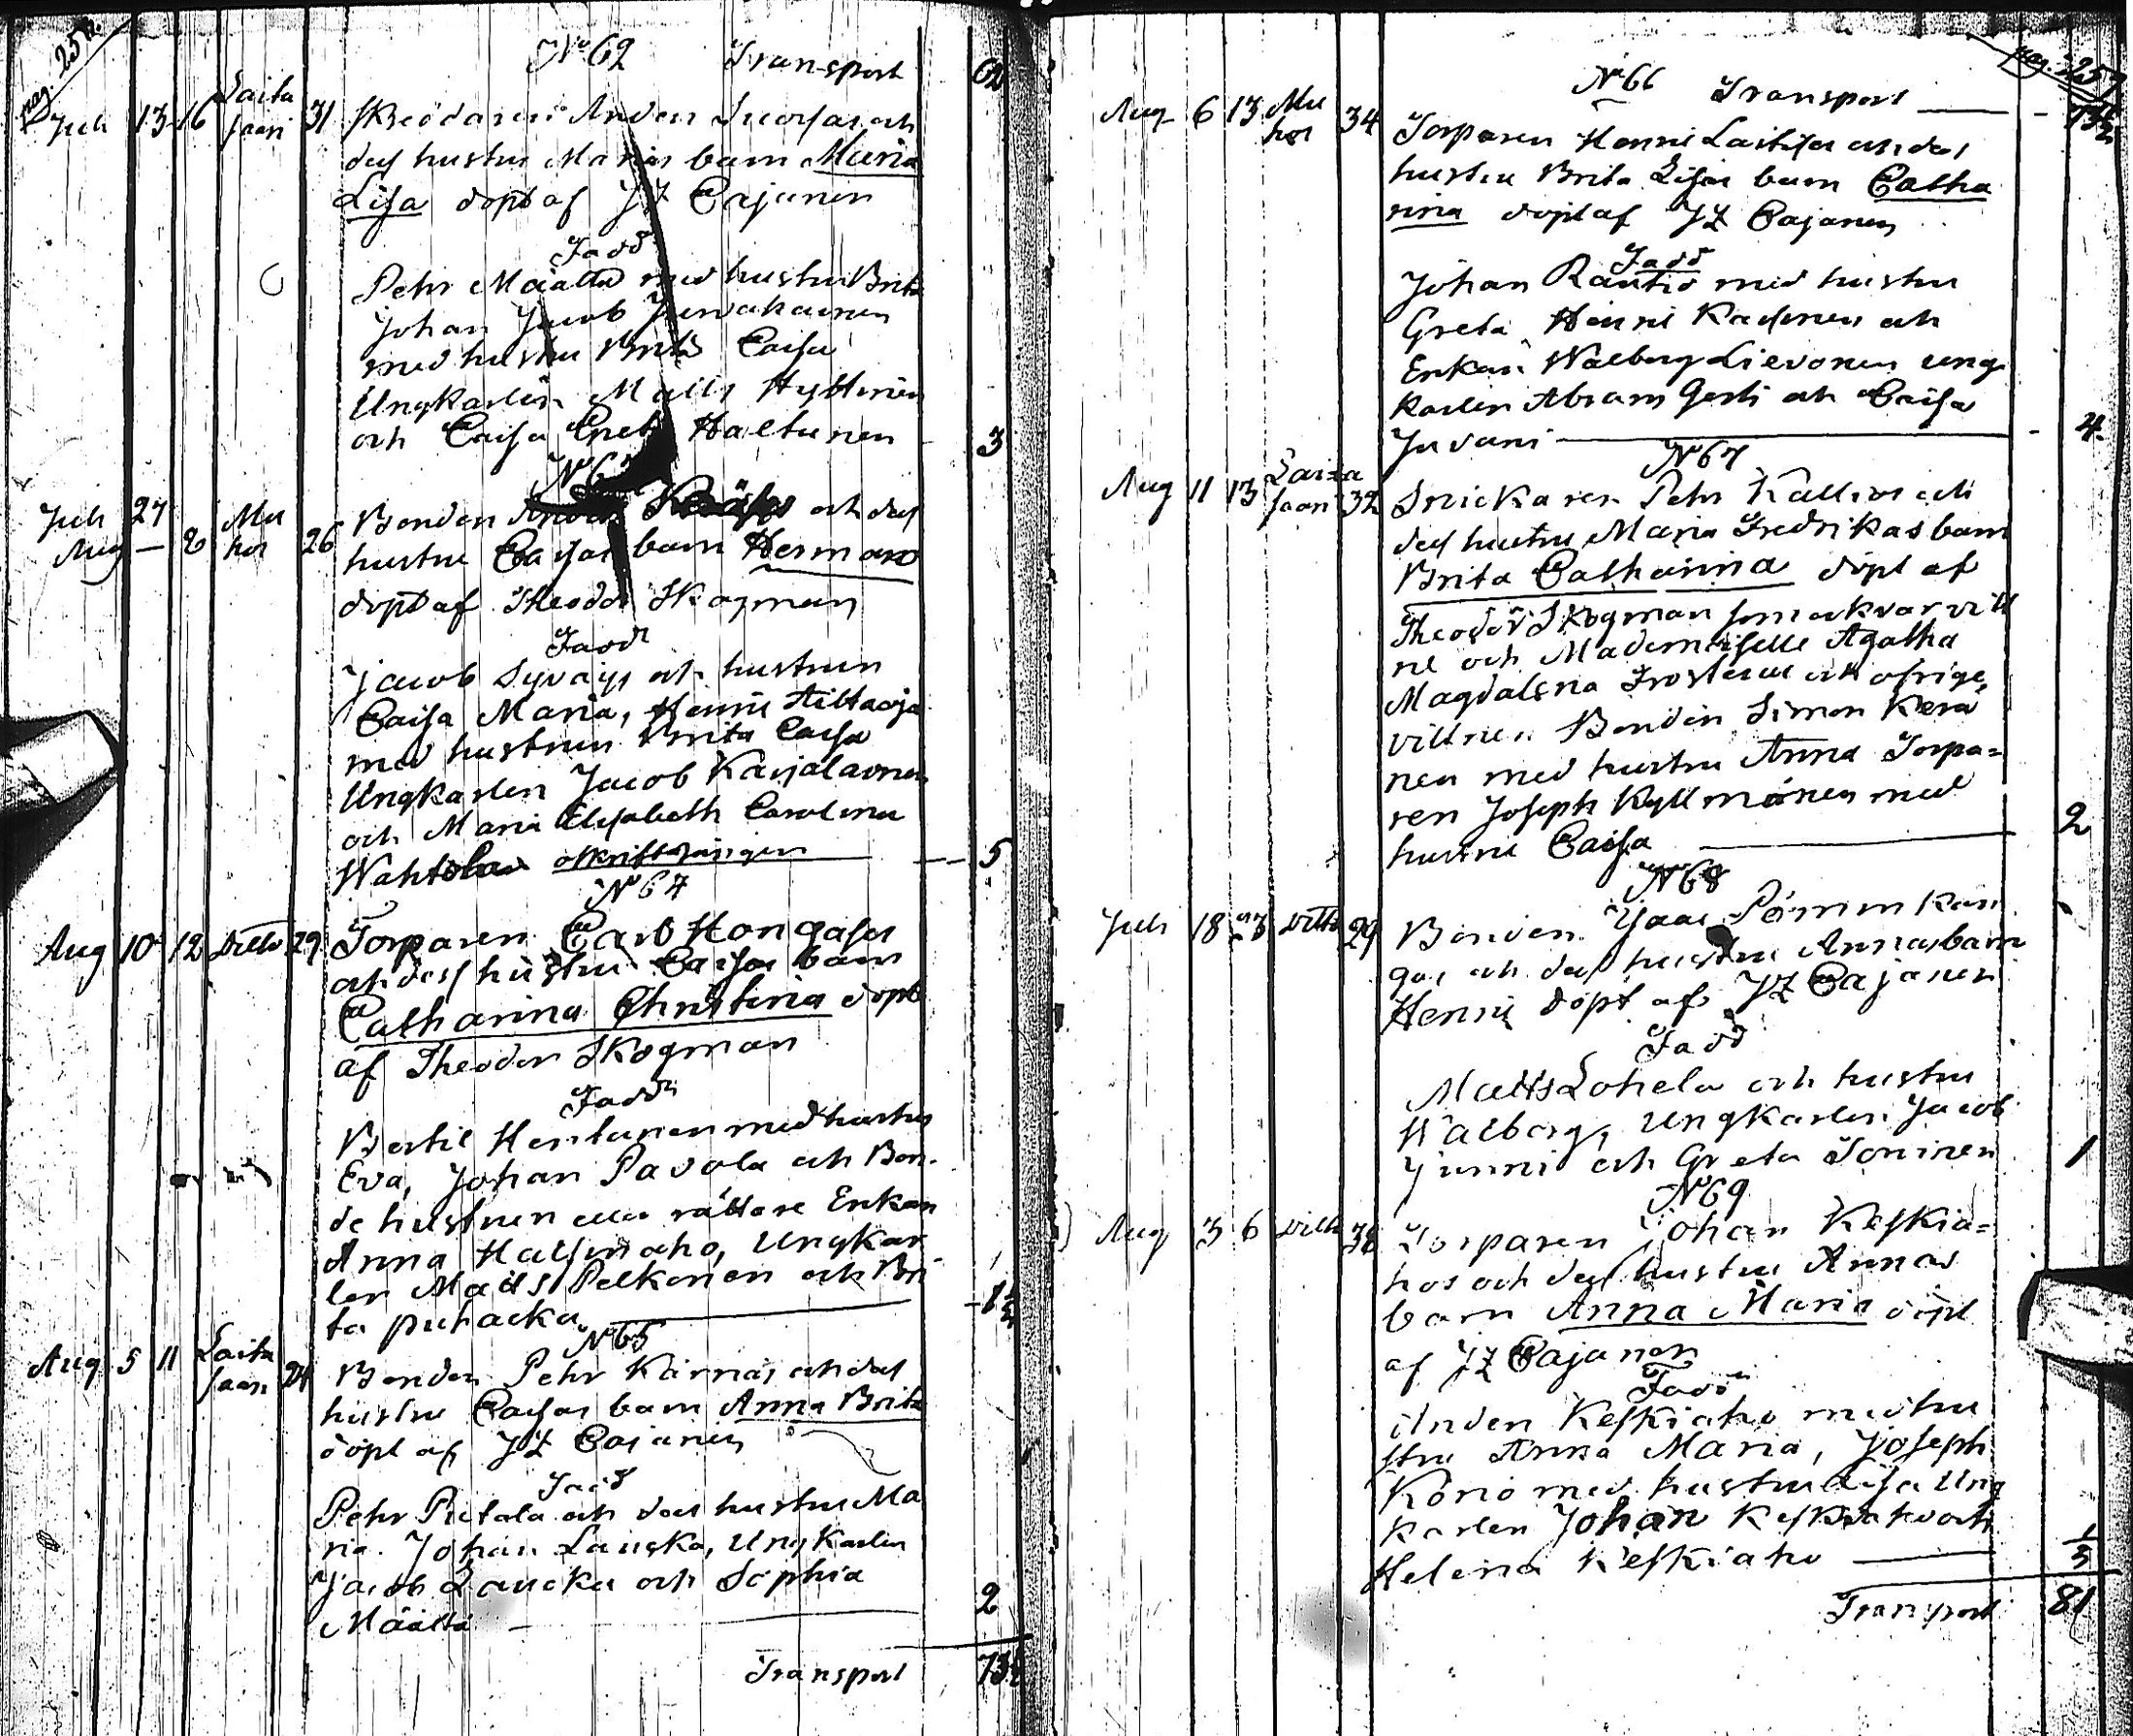 pag. 25
No 62 Transport 62
Juli 13 16 Laita saari 31 Skräddaren Anders och
dess hustru Marias barn Maria
Lisa döpt af JZ Cajanen
Fadd
Pehr Määttä med hustru Brita
Johan Jacob
med hustru Brita Caisa
Ungkarlen Matts Hyttinen
och Caisa Greta Haltunen 3
No 6
Juli 27
Aug 2 Mu hos 26 Bonden och dess
hustru Caisas barn Herman
döpt af Theodor Skogman
Fadd
Jacob och hustrun
Caisa Maria, Henric
med hustrun Brita Caisa
Ungkarlen Jacob Karjalainen
och Maria Elisabeth Carolina
Wahtola 5
No 64
Aug 10 12 Ditto 29 Torparen Carl Hongases
och dess hustru Caisas barn
Catharina Christina döpt
af Theodor Skogman
Fadd
Bertil Hentunen med hustru
Eva, Johan Pavola och Bon-
de hustrun eller rättare Enkan
Anna Halsinaho, Ungkar
len Matts Pelkonen och Bri
ta puhacka
No 65
Aug 5 11 Laita saari 24 Bonden Pehr Kärnäs och dess
hustru Caisas barn Anna Brita
döpt af JZ Cajanen
Fadd
Pehr Pietola och dess hustru Ma
ria. Johan Laucka, Ungkarlen
Jacob Laucka och Sophia
Määttä 2
Transport 73½
pag. 257
No 66 Transport 73½
Aug 6 13 Mu hos 34 Torparen Henric Laitises och dess
hustru Brita Lisas barn Catha
rina döpt af JZ Cajanen
Fadd
Johan Rautio med hustru
Greta, Henric och
Enkan Walborg Lievonen ung
karlen Abram Gerli och Caisa
Juvani 4
No 67
Aug 11 13 Laita saari 32 Snickaren Pehr Kallios och
dess hustru Maria Fredrikas barn
Brita Catharina döpt af
Theodor Skogman som ock var vitt
ne och Mademoiselle Agatha
Magdalena Frosterus och öfrige
vittnen Bonden Simon Kerä
nen med hustru Anna Torpa=
ren Joseph Kyllmänen med
hustru Caisa 2
No 68
Juli 18 23 Ditto 29 Bonden Isaac
gas och dess hustru Annas barn
Henric döpt af JZ Cajanen
Fadd
Matts Lohela och hustru
Walborg, Ungkarlen Jacob
Junni och Greta Toninen 1
No 69
Aug 3 6 Ditto 38 Torparen Johan Keskia=
hos och dess hustru Annas
barn Anna Maria döpt
af JZ Cajanen
Fadd
Anders Keskiaho med hu
stru Anna Maria, Joseph
Koriö med hustru Lisa Ung
karlen Johan Keskiaho och
Helena Keskiaho ⅓
Transport 81